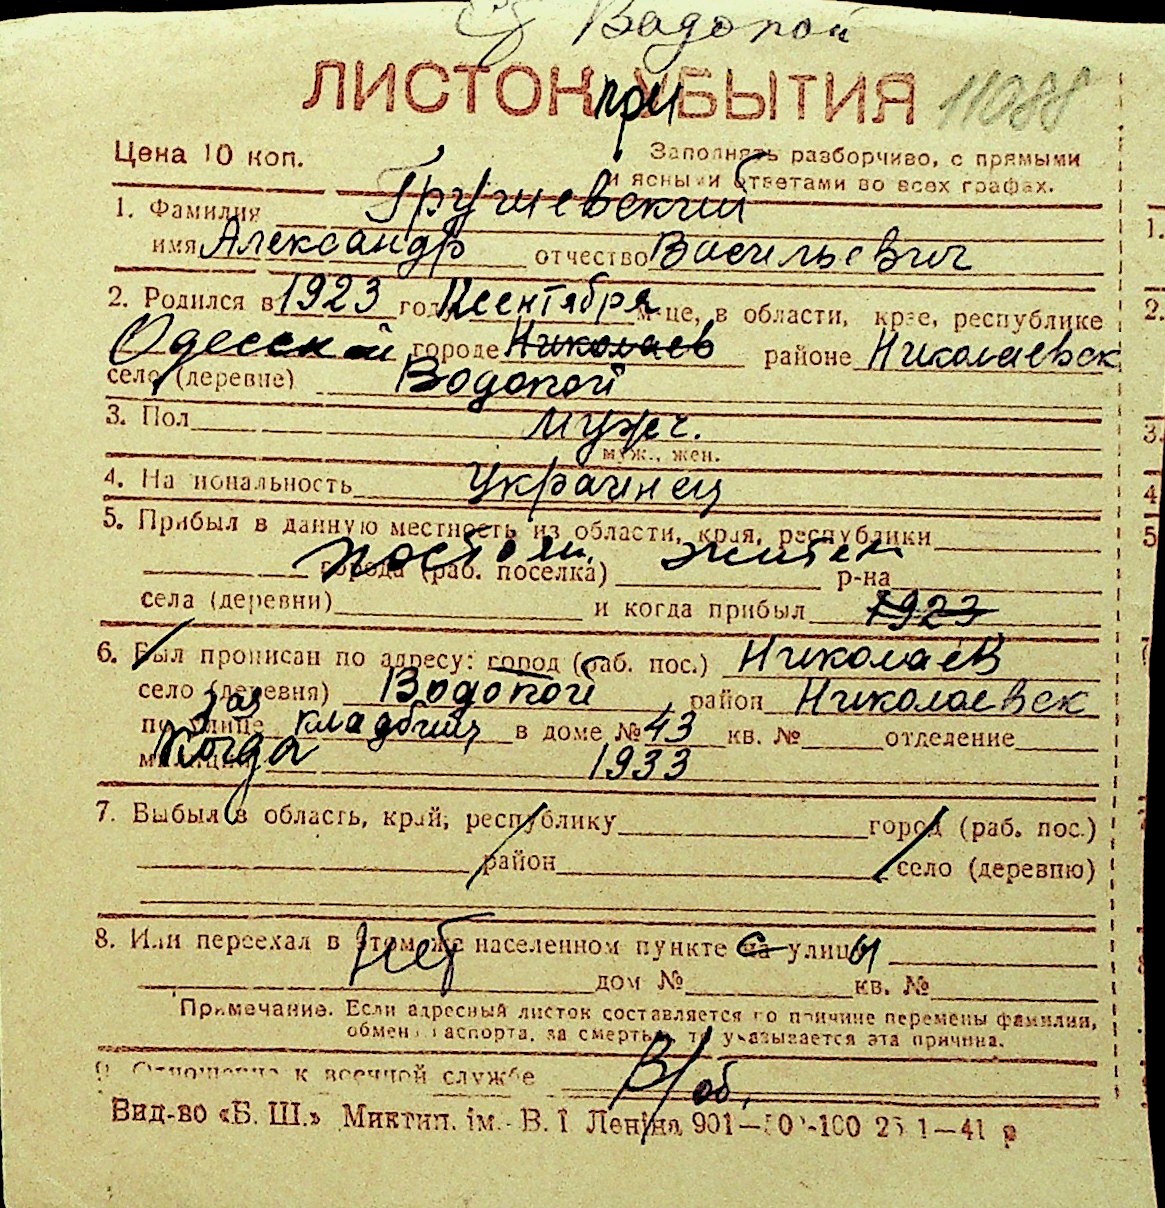 с. Водопой
ЛИСТОК при УБЫТИЯ 11088
Цена 10 коп. Заполнять разборчиво, с прямыми
и ясными ответами во всех графах.
1. Фамилия Грушевский
имя Александр отчество Васильевич
2. Родился в 1923 году 12 сентября м-це, в области, крае, республике
Одесской городе Николаев районе Николаевск
село (деревне) Водопой
3. Пол мужч.
муж., жен.
4. Национальность Украинец
5. Прибыл в данную местность из области, края, республики
постоян. житель
города (раб. поселка) р-на
села (деревни) и когда прибыл 1923
6. Был прописан по адресу: город (раб. пос.) Николаев
село (деревня) Водопой район Николаевск
по улице за кладбищ в доме № 43 кв. № отделение
милиции когда 1933
7. Выбыл в область, край, республику город (раб. пос.)
район село (деревню)
8. Или переехал в этом же населенном пункте с на улицы
нет дом № кв. №
Примечание. Если адресный листок составляется по причине перемены фамилии,
обмен паспорта, за смертью, то указывается эта причина.
9. Отношение к военной службе В/об.
Вид-во «Б. Ш.» Миктип. ім. В. І Леніна 901—50 -100 25 1—41 р